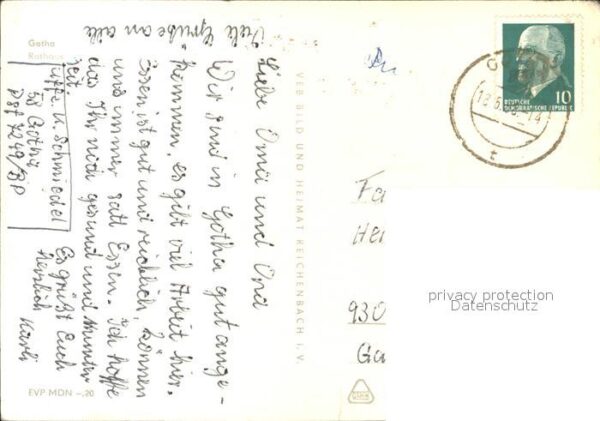 Gotha
Rathaus
Liebe Oma und Opa
Wir sind in Gotha gut ange-
kommen, es gibt viel Arbeit hier.
Essen ist gut und reichlich, können
uns immer satt Essen. Ich hoffe
das Ihr noch gesund und munter
seit.
Es grüßt Euch
Herzlich Karli
Viele Grüße an alle
u. Schmiedel
58 Gotha
VEB BILD UND HEIMAT REICHENBACH I. V.
EVP MDN –.20
DEUTSCHE
DEMOKRATISCHE REPUBLIK
10
930
privacy protection
Datenschutz